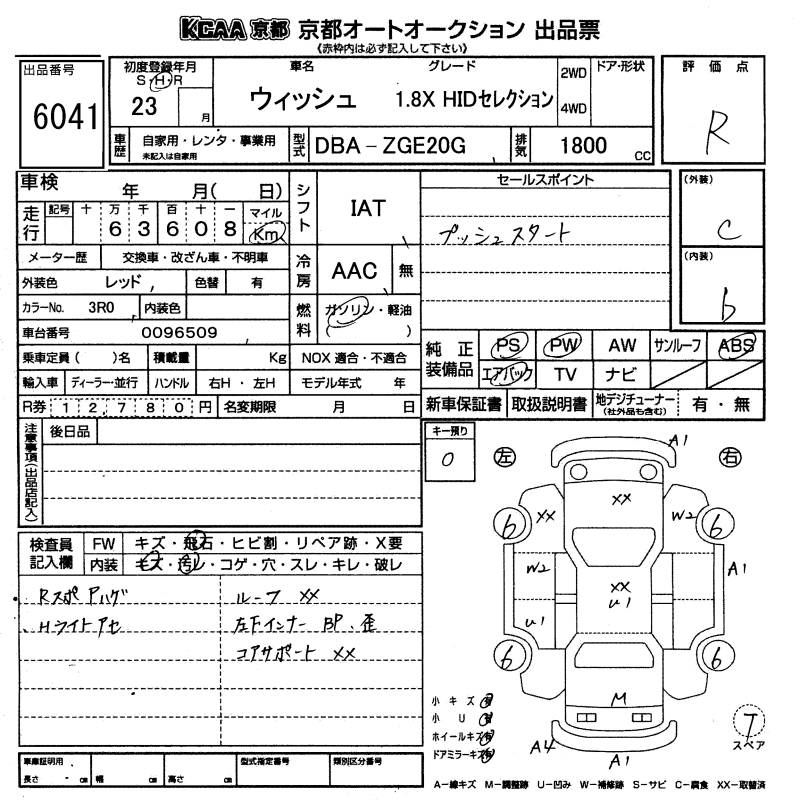 KCAA 京都 京都オートオークション 出品票
《赤枠内は必ず記入して下さい》
出品番号
6041
初度登録年月
S・H・R
23 月
車名 グレード
ウィッシュ 1.8X HIDセレクション
2WD
4WD
ドア・形状
評価点
R
車歴
自家用・レンタ・事業用
未記入は自家用
型式 DBA－ZGE20G
排気 1800 cc
車検 年 月( 日)
走行 記号 十 万 千 百 十 一 マイル
6 3 6 0 8 Km
メーター歴 交換車・改ざん車・不明車
外装色 レッド 色替 有
カラーNo. 3R0 内装色
車台番号 0096509
乗車定員( )名 積載量 Kg
輸入車 ディーラー・並行 ハンドル 右H・左H
R券 12,780円 名変期限 月 日
シフト IAT
冷房 AAC 無
燃料 ガソリン・軽油
( )
NOX 適合・不適合
モデル年式 年
セールスポイント
プッシュスタート
(外装)
C
(内装)
b
純正装備品 PS PW AW サンルーフ ABS
エアバック TV ナビ
新車保証書 取扱説明書 地デジチューナー(社外品も含む) 有・無
注意事項(出品店記入)
後日品
キー預り
0
左
右
検査員記入欄
FW キズ・飛石・ヒビ割・リペア跡・X要
内装 キズ・汚レ・コゲ・穴・スレ・キレ・破レ
Rスポアハゲ
Hライトアセ
ルーフ XX
左下インナー BP、歪
コアサポート XX
A1
XX
XX
W2
b
b
W2
XX
U1
A1
U1
b
b
M
A4
A1
小キズ
小U
ホイールキズ
ドアミラーキズ
T
スペア
車庫証明用
長さ cm 幅 cm 高さ cm
型式指定番号
類別区分番号
A－線キズ M－調整跡 U－凹み W－補修跡 S－サビ C－腐食 XX－取替済